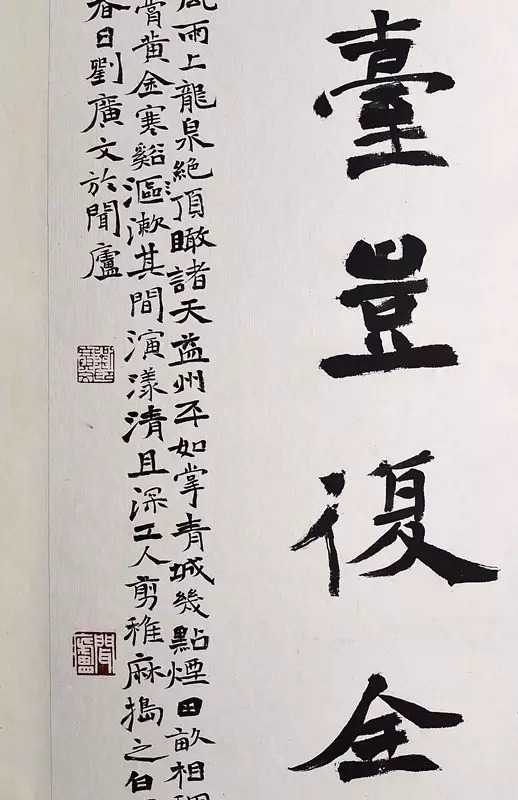 臺豈復全
風雨上龍泉絕頂瞰諸天益州平如掌青城幾點煙田畝相
膏黃金寒谿漚漱其間演漾清且深工人剪稚麻搗之白
春日劉廣文於聞廬
聞廬